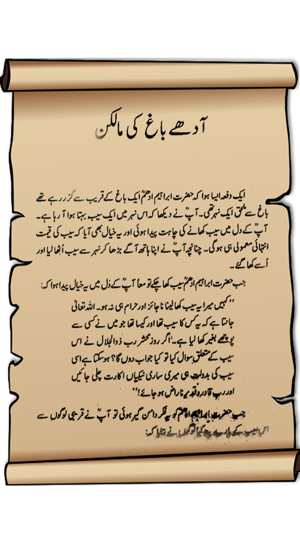 آدھے باغ کی مالکن
ایک دفعہ ایسا ہوا کہ حضرت ابراہیم ادھمؒ ایک باغ کے قریب سے گزر رہے تھے
باغ سے ملحق ایک نہر تھی۔ آپؒ نے دیکھا کہ اس نہر میں ایک سیب بہتا ہوا آ رہا ہے۔
آپؒ کے دل میں سیب کھانے کی چاہت پیدا ہوئی اور یہ خیال بھی آیا کہ سیب کی قیمت
انتہائی معمولی ہی ہوگی۔ چنانچہ آپؒ نے اپنا ہاتھ آگے بڑھا کر نہر سے سیب اُٹھا لیا اور
اُسے کھا گئے۔
جب حضرت ابراہیم ادھمؒ سیب کھا چکے تو معاً آپؒ کے دل میں یہ خیال پیدا ہوا کہ:
''کہیں میرا یہ سیب کھا لینا ناجائز اور حرام ہی نہ ہو۔ اللہ تعالیٰ
جانتا ہے کہ یہ کس کا سیب تھا اور کیسا تھا جو میں نے کسی سے
پوچھے بغیر کھا لیا ہے۔ اگر روزِ محشر رب ذوالجلال نے اس
سیب کے متعلق سوال کیا تو کیا جواب دوں گا؟ ہو سکتا ہے اسی
سیب کی بدولت ہی میری ساری نیکیاں اکارت چلی جائیں
اور ربِ قادر و قدیر ناراض ہو جائے!''
جب حضرت ابراہیم ادھمؒ کو یہ فکر دامن گیر ہوئی تو آپؒ نے قریبی لوگوں سے
اس سیب کے بارے